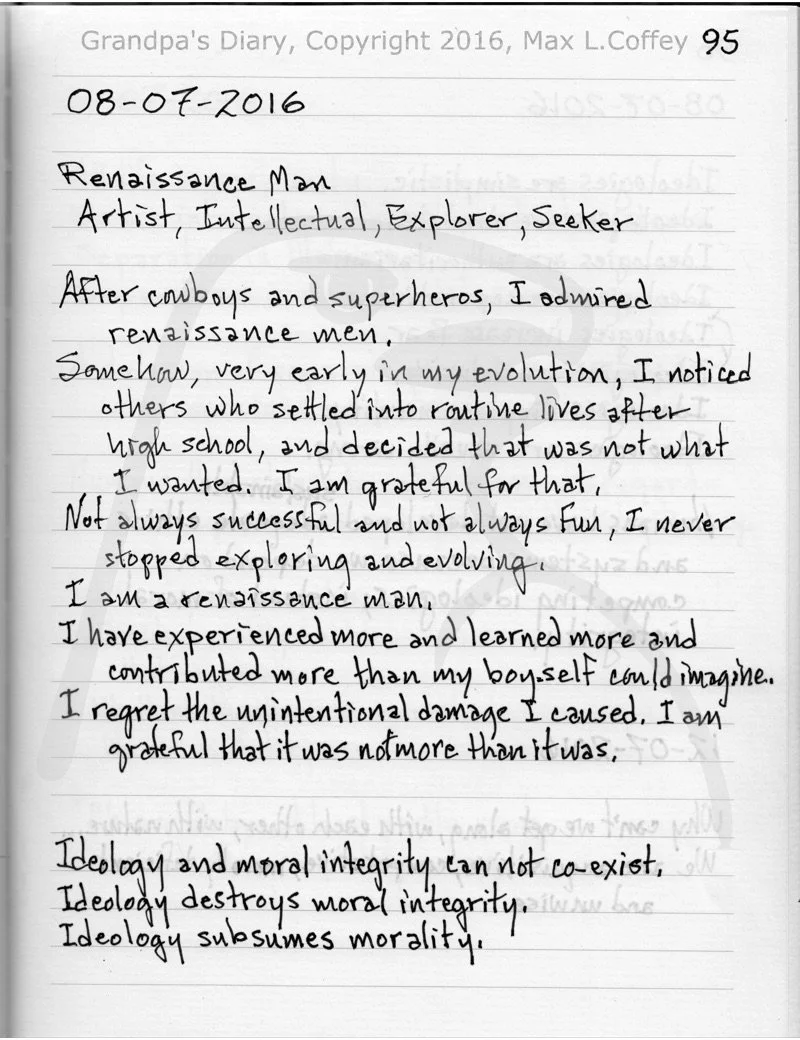 Grandpa's Diary, Copyright 2016, Max L.Coffey 95
08-07-2016
Renaissance Man
Artist, Intellectual, Explorer, Seeker
After cowboys and superheros, I admired
renaissance men.
Somehow, very early in my evolution, I noticed
others who settled into routine lives after
high school, and decided that was not what
I wanted. I am grateful for that.
Not always successful and not always fun, I never
stopped exploring and evolving.
I am a renaissance man.
I have experienced more and learned more and
contributed more than my boy-self could imagine..
I regret the unintentional damage I caused. I am
grateful that it was not more than it was.
Ideology and moral integrity can not co-exist.
Ideology destroys moral integrity.
Ideology subsumes morality.